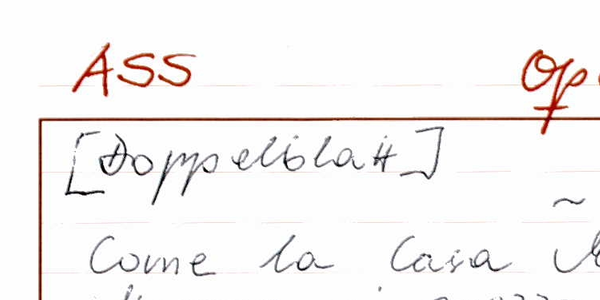 ASS Op
[Doppelblatt]
Come la Casa